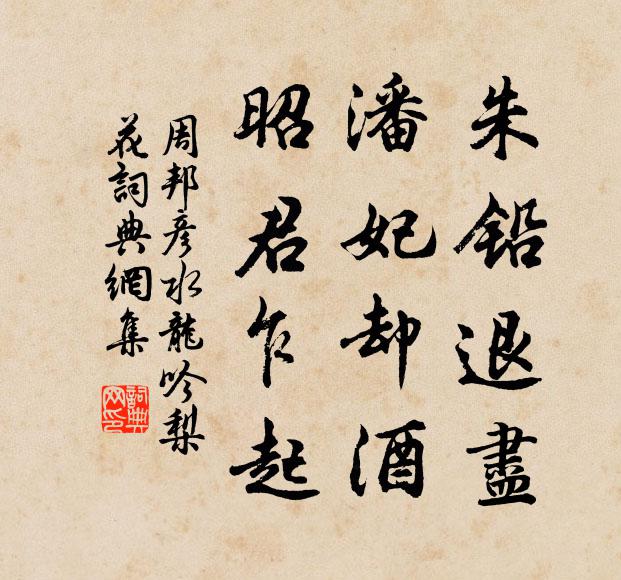 朱鉛退盡
潘妃却酒
昭君乍起
周邦彦水龍吟梨
花詞典網集
詞典
网印